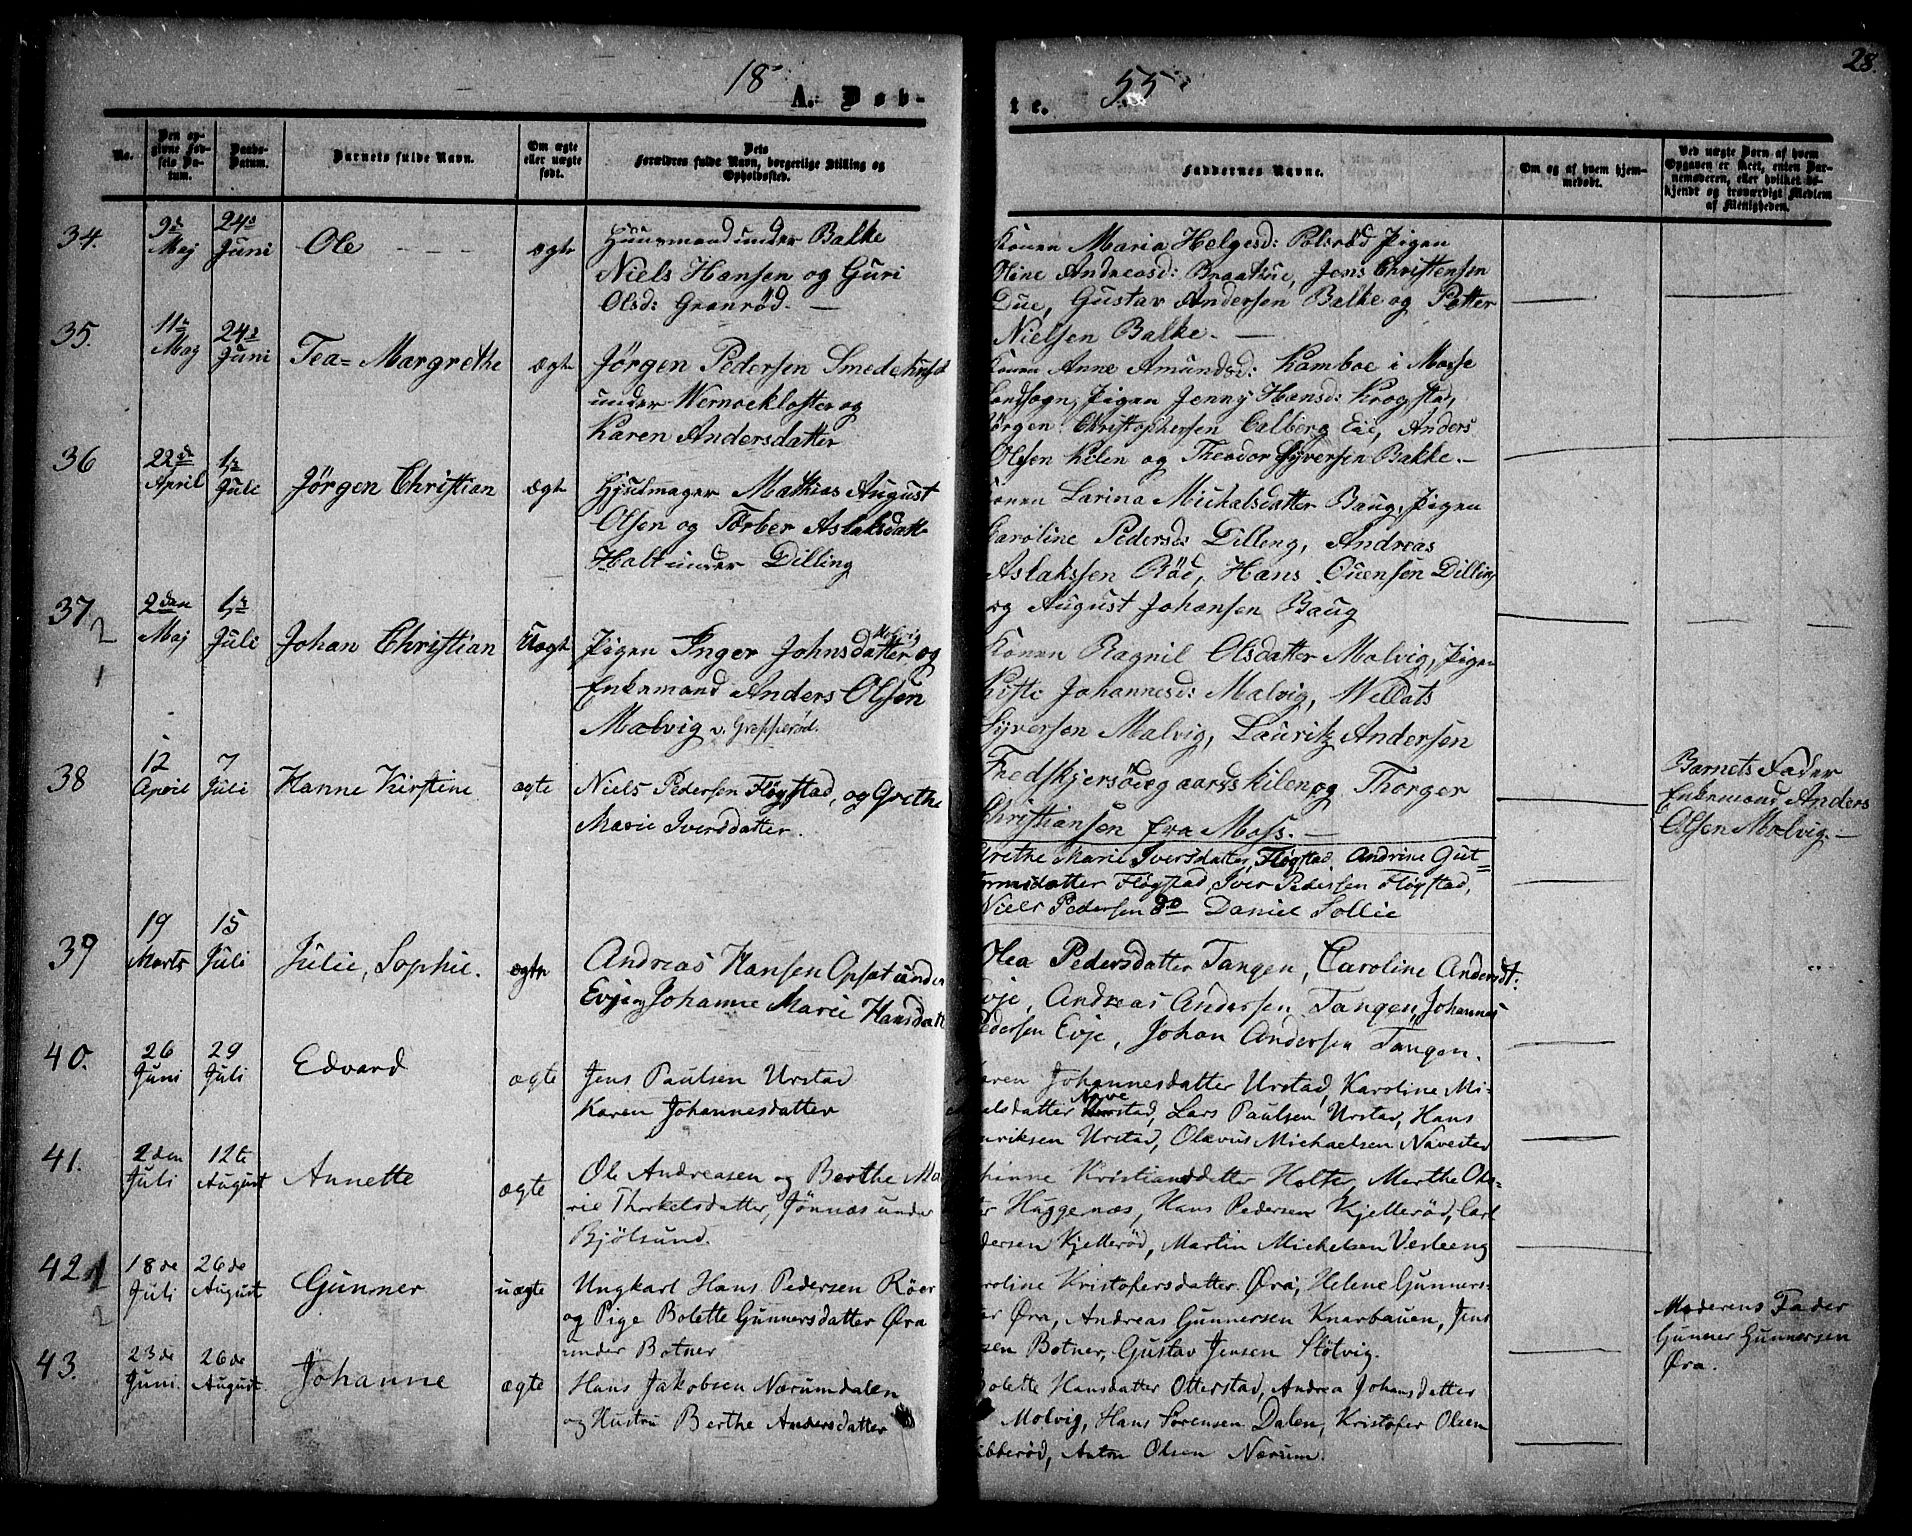 28.
18
55
A. Døb-
te.
No.
Den op-
givne Fød-
sels Da-
tum.
Daabs-
Datum.
Barnets fulde Navn.
Om ægte
eller uægte
født.
Dets
Forældres fulde Navn, borgerlige Stilling og
Opholdssted.
Faddernes Navne.
Om og af hvem hjem-
medøbt.
Ved uægte Børn af hvem
Opgaven er skeet, enten Bar-
nemoderen, eller hvilket be-
kjendt og troværdigt Medlem
af Menigheden.
34.
9de
Maj
24de
Juni
Ole
ægte
Huusmand under Balke
Niels Hansen og Guri
Olsd: Granrød.
Konen Maria Helgesd: Polsrød Pigen
Oline Andreasd: Braatkie, Jens Christensen
Due, Gustav Andersen Balke og Petter
Nielsen Balke.
35.
11te
Maj
24de
Juni
Tea= Margrethe
ægte
Jörgen Pedersen Smedehuset
under Wernoekloster og
Karen Andersdatter
Konen Anne Amundsd: Kamboe i Mosse
Landsogn, Pigen Jenny Hansd: Krogstad,
Jørgen Christophersen Calberg Eie, Anders
Olsen Kilen og Theodor Syversen Bakke.
36
22de
April
1te
Juli
Jörgen Christian
ægte
Hjulmager Mathias August
Olsen og Torber Aslaksdatt
Holt under Dilling
Konen Larina Michelsdatter Baug, Pigen
Caroline Pedersd: Dilling, Andreas
Aslakssen Röd, Hans Ouensen Dilling
og August Johansen Baug
37.
2
1
2den
Maj
1te
Juli
Johan Christian
Uægte
Pigen Inger Johnsdatter Molvig og
Enkemand Anders Olsen
Molvig v. Grepperød.
Konen Ragnil Olsdatter Molvig, Pigen
Johannesd: Malvig, Mellats
Syversen Malvig, Lauritz Andersen
Fredskjersöiegaardskilen og Thorger
Christiansen fra Moss.
Barnets Fader
Enkemand Anders
Olsen Molvig.
38
12
April
7
Juli
Hanne Kirstine
ægte
Niels Pedersen Fløgstad, og Grethe
Marie Iversdatter.
Grethe Marie Iversdatter, Fløgstad, Andrine Gut=
tormsdatter Fløgstad, Iver Pedersen Fløgstad,
Niels Pedersen do Daniel Sollie
39
19
Marts
15
Juli
Julie, Sophie.
ægte
Andreas Hansen Opsat under
Evje og Johanne Marie Hansdatt
Olea Pedersdatter Tangen, Caroline Andersdt:
Evje, Andreas Andersen Tangen, Johannes
Pedersen Evje, Johan Andersen Tangen.
40.
26
Juni
29
Juli
Edvard
ægte
Jens Paulsen Urstad
Karen Johannesdatter
Karen Johannesdatter Urstad, Karoline Mi-
elsdatter Nave Urstad, Lars Paulsen Urstad, Hans
enriksen Urstad, Olavus Michaelsen Navestad
41.
2den
Juli
12te
August
Annette
ægte
Ole Andreasen og Berthe Ma
rie Thorkelsdatter, Jönnæs under
Bjölsund.
hinne Kristiansdatter Holte, Merthe Ols-
er Huggenæs, Hans Pedersen Kjellerød, Carl
dersen Kjellerød, Martin Michelsen Verleeng
42.
1
2
18de
Juli
26de
August
Gunner
uægte
Ungkarl Hans Pedersen Röer
og Pige Bolette Gunnersdatter Øra
under Botner
roline Kristofersdatter Øra, Helene Gunners-
er Øra, Andreas Gunnersen Knarbauen, Jens
sen Botner, Gustav Jensen Stölvig.
Moderens Fader
Gunner Gunnersen
Øra.
43.
23de
Juni.
26de
August
Johanne
ægte
Hans Jakobsen Nærumdalen
og Hustru Berthe Andersdatter
Bolette Hansdatter Otterstad, Andrea Johansdatter
Molvig, Hans Sørensen Dalen, Kristofer Olsen
ibberød, Anton Olsen Nærum.